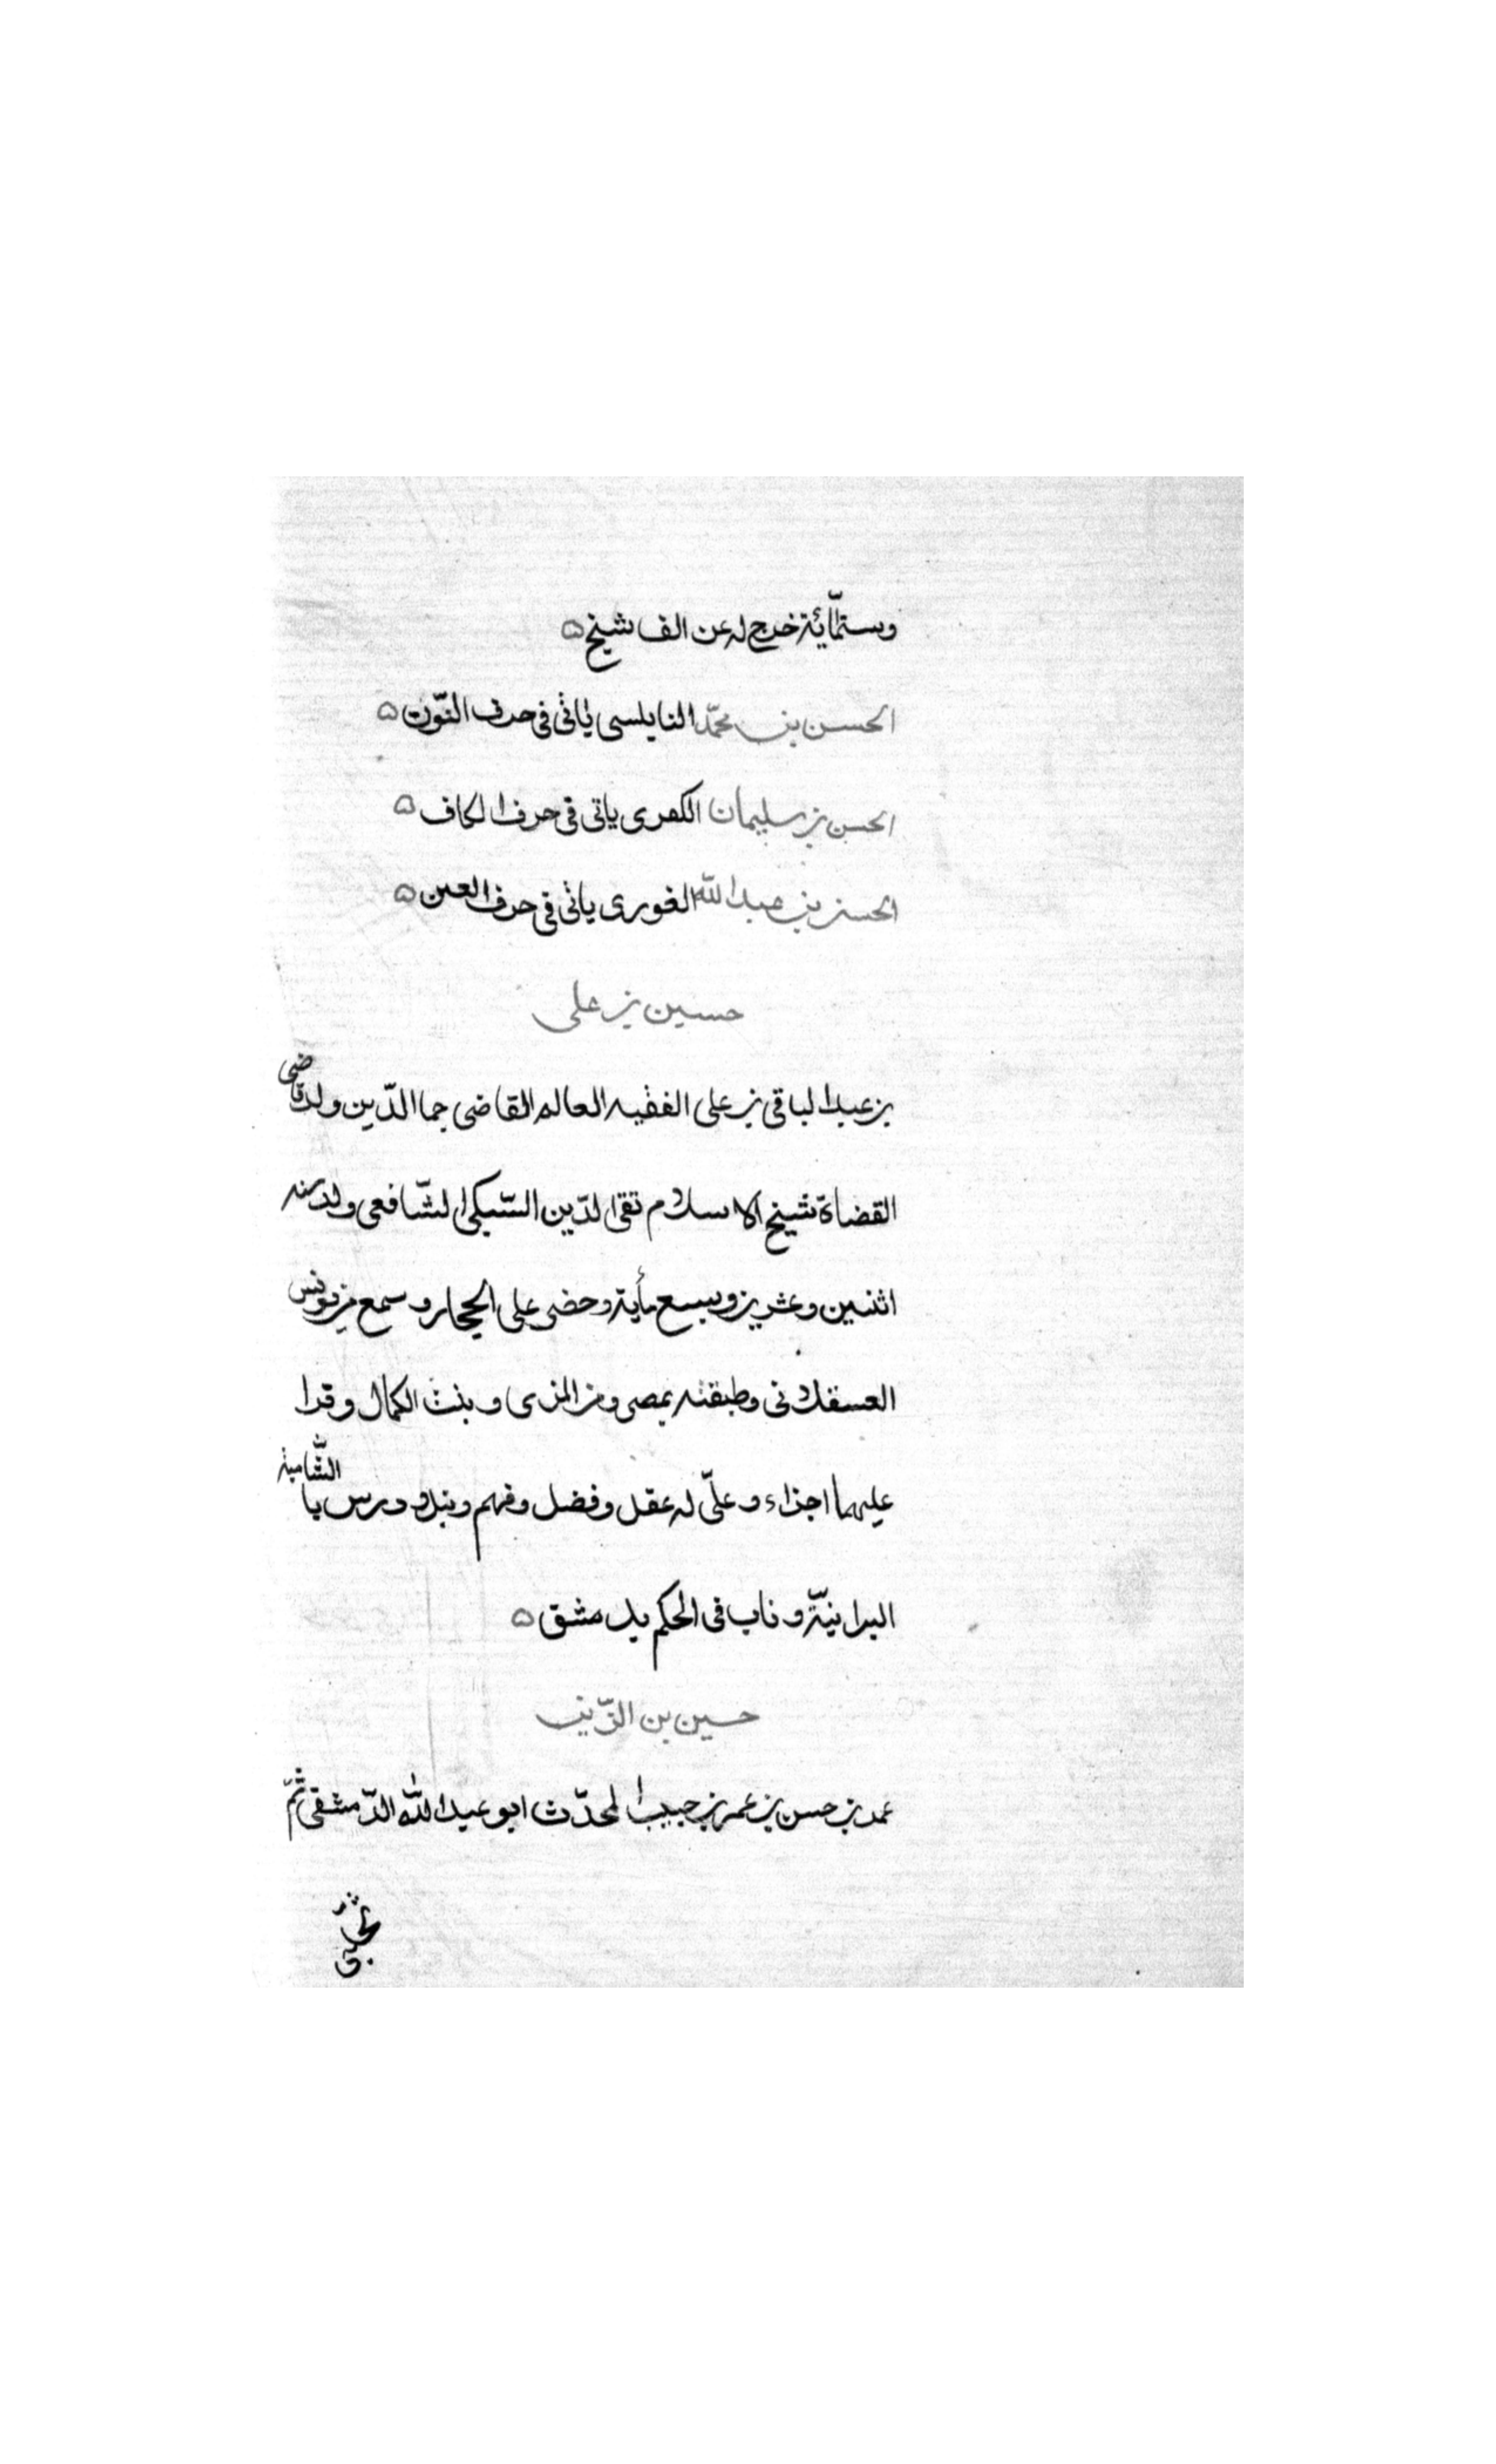 وستمّائة خرج له عن الف شيخ ه
الحسن بن محمّد النابلسى ياتى فى حرف النّون ه
الحسن بن سليمان الكفرى ياتى فى حرف الكاف ه
الحسن بن عبد الله الغورى ياتى فى حرف الغين ه
حسين بن على
بن عبد الباقى بن على الفقيه العالم القاضى جما الدّين ولد قاضى
القضاة شيخ الاسلام تقى الدّين السّبكى الشّافعى ولد سنه
اثنين وعشرين وسبع مأية وحضر على الحجار وسمع من يونس
العسقلانى وطبقته بمصر ومن المزى و بنت الكمال وقرا
عليهما اجزاء و علىّ له عقل وفضل وفهم ونبل ودرس با الشّامية
البرانيّة وناب فى الحكم بدمشق ه
حسين بن الزّين
عمر بن حسن بن عمر بن حبيب المحدّث ابو عبد الله الدّمشقى ثمّ